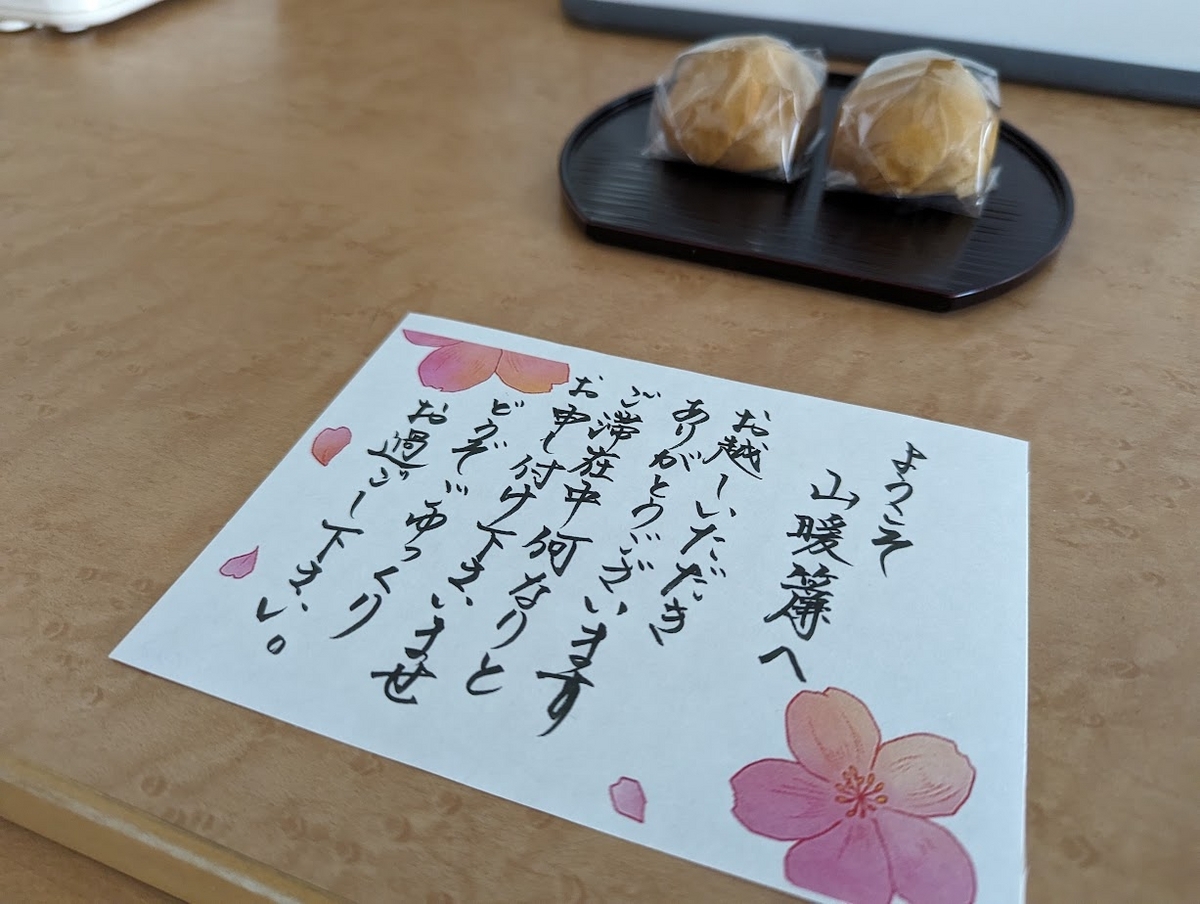 ようこそ
山暖簾へ
お越しいただき
ありがとうございます
ご滞在中何なりと
お申し付け下さいませ
どうぞごゆっくり
お過ごし下さい。